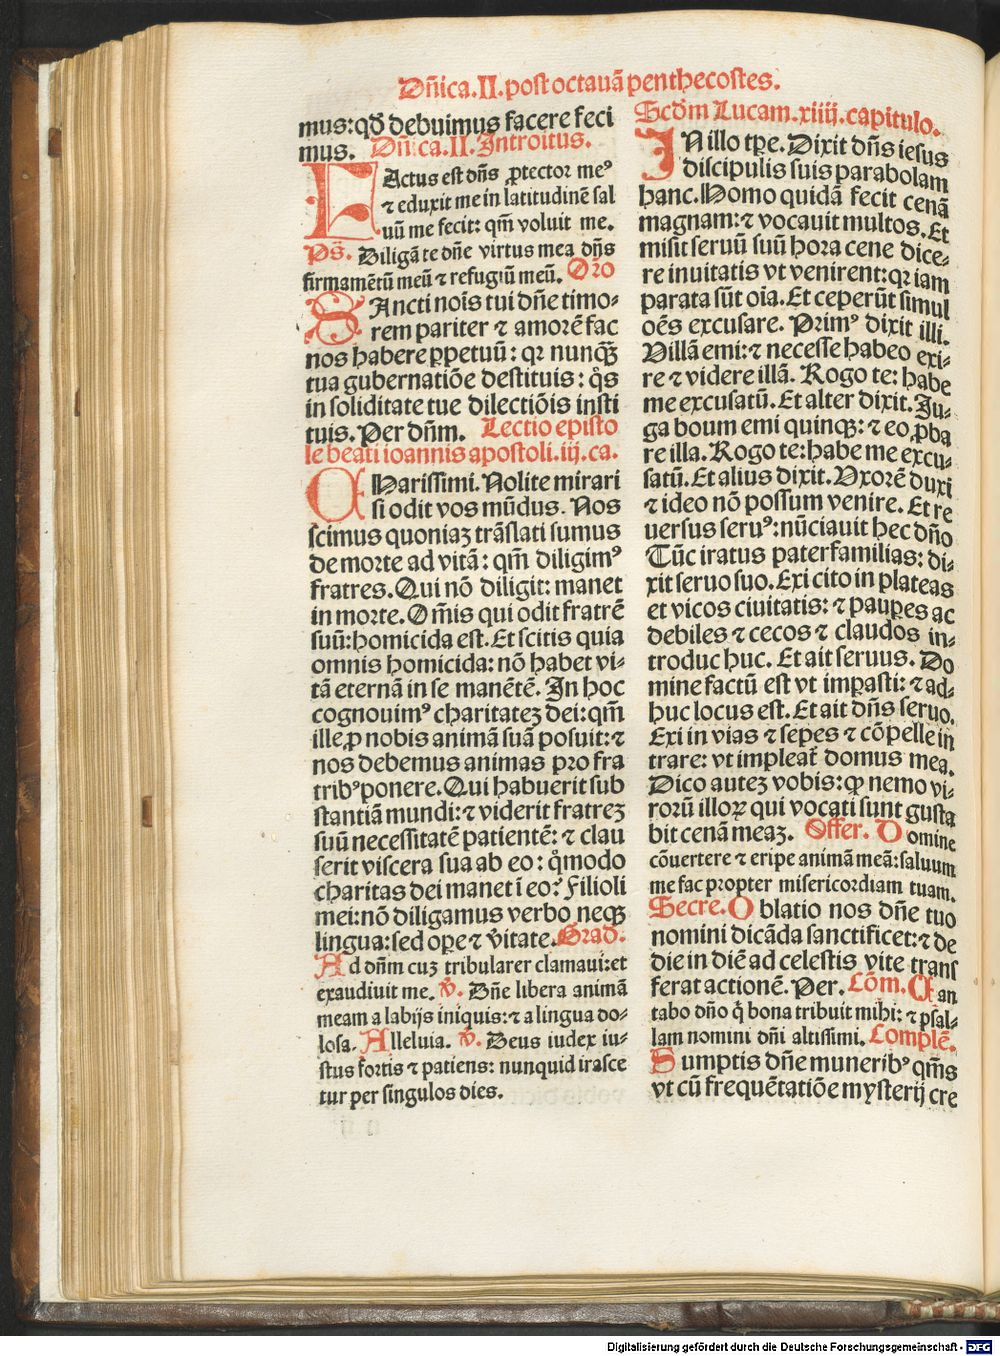 Dñica.II.post octauā penthecostes.
mus:qđ debuimus facere feci
mus. Dñica.II.Introitus.
FActus est dñs ꝓtector meꝰ
⁊ eduxit me in latitudinē sal
uū me fecit: qm̄ voluit me.
Pš. Diligā te dñe virtus mea dñs
firmamētū meū ⁊ refugiū meū. Oro
SAncti noīs tui dñe timo-
rem pariter ⁊ amorē fac
nos habere ꝑpetuū: qꝛ nunqꝫ̄
tua gubernatiōe destituis: q̊s
in soliditate tue dilectiōis insti
tuis. Per dñm. Lectio episto
le beati ioannis apostoli.iij.ca.
CHarissimi. Nolite mirari
si odit vos mūdus. Nos
scimus quoniaꝫ trāslati sumus
de morte ad vitā: qm̄ diligimꝰ
fratres. Qui nō diligit: manet
in morte. Om̄is qui odit fratrē
suū: homicida est. Et scitis quia
omnis homicida: nō habet vi-
tā eternā in se manētē. In hoc
cognouimꝰ charitateꝫ dei: qm̄
ille ꝓ nobis animā suā posuit: ⁊
nos debemus animas pro fra
tribꝰ ponere. Qui habuerit sub
stantiā mundi: ⁊ viderit fratreꝫ
suū necessitatē patientē: ⁊ clau
serit viscera sua ab eo: q̊modo
charitas dei manet ī eo? Filioli
mei: nō diligamus verbo neqꝫ
lingua: sed oꝑe ⁊ vitate. Grad.
Ad dñm cuꝫ tribularer clamaui: et
exaudiuit me. ꝟ. Dñe libera animā
meam a labijs iniquis: ⁊ a lingua do-
losa. Alleluia. ꝟ. Deus iudex iu-
stus fortis ⁊ patiens: nunquid irasce
tur per singulos dies.
Scđm Lucam.xiiij.capitulo.
IN illo tꝑe. Dixit dñs iesus
discipulis suis parabolam
hanc. Homo quidā fecit cenā
magnam: ⁊ vocauit multos. Et
misit seruū suū hora cene dice-
re inuitatis vt venirent: qꝛ iam
parata sūt oīa. Et ceperūt simul
oēs excusare. Primꝰ dixit illi.
Villā emi: ⁊ necesse habeo exi-
re ⁊ videre illā. Rogo te: habe
me excusatū. Et alter dixit. Ju-
ga boum emi quinqꝫ: ⁊ eo ꝓba
re illa. Rogo te: habe me excu-
satū. Et alius dixit. Vxorē duxi
⁊ ideo nō possum venire. Et re
uersus seruꝰ: nūciauit hec dño
Tūc iratus paterfamilias: di-
xit seruo suo. Exi cito in plateas
et vicos ciuitatis: ⁊ pauꝑes ac
debiles ⁊ cecos ⁊ claudos in-
troduc huc. Et ait seruus. Do
mine factū est vt imꝑasti: ⁊ ad-
huc locus est. Et ait dñs seruo.
Exi in vias ⁊ sepes ⁊ cōpelle in
trare: vt impleat̄ domus mea.
Dico auteꝫ vobis: ꝙ nemo vi-
rorū illoꝝ qui vocati sunt gusta
bit cenā meaꝫ. Offer. Domine
cōuertere ⁊ eripe animā meā: saluum
me fac propter misericordiam tuam.
Secre. Oblatio nos dñe tuo
nomini dicāda sanctificet: ⁊ de
die in diē ad celestis vite trans
ferat actionē. Per. Cōm. Can
tabo dño q̇ bona tribuit mihi: ⁊ psal-
lam nomini dñi altissimi. Complē.
Sumptis dñe muneribꝰ qm̄s
vt cū frequētatiōe mysterij cre
Digitalisierung gefördert durch die Deutsche Forschungsgemeinschaft - DFG